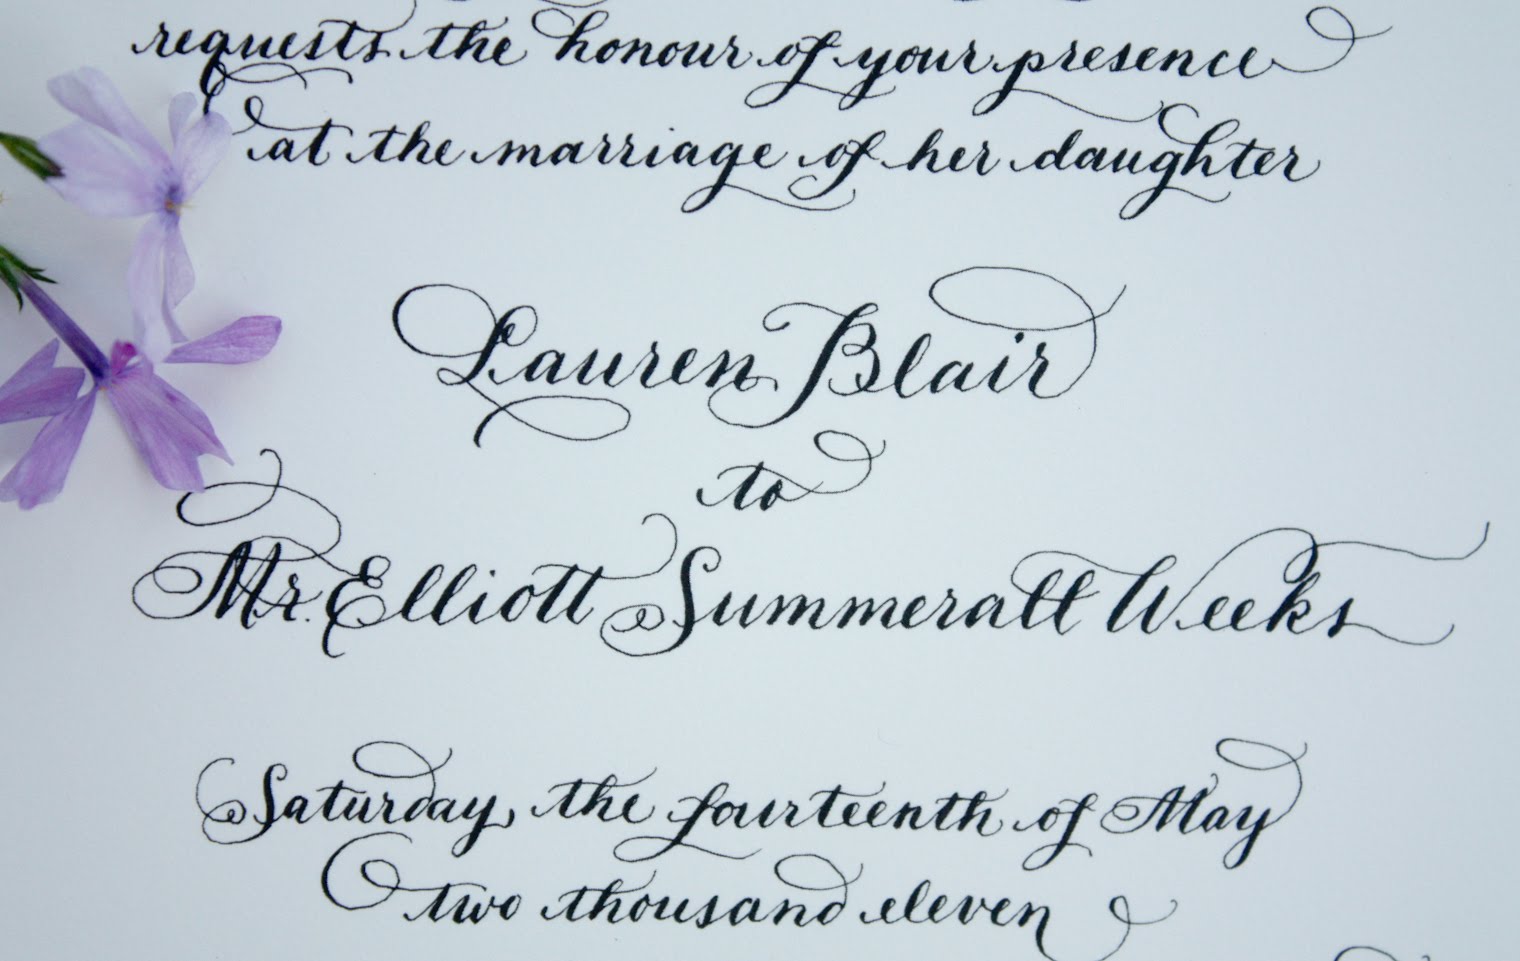 requests the honour of your presence
at the marriage of her daughter
Lauren Blair
to
Mr. Elliott Summerall Weeks
Saturday, the fourteenth of May
two thousand eleven